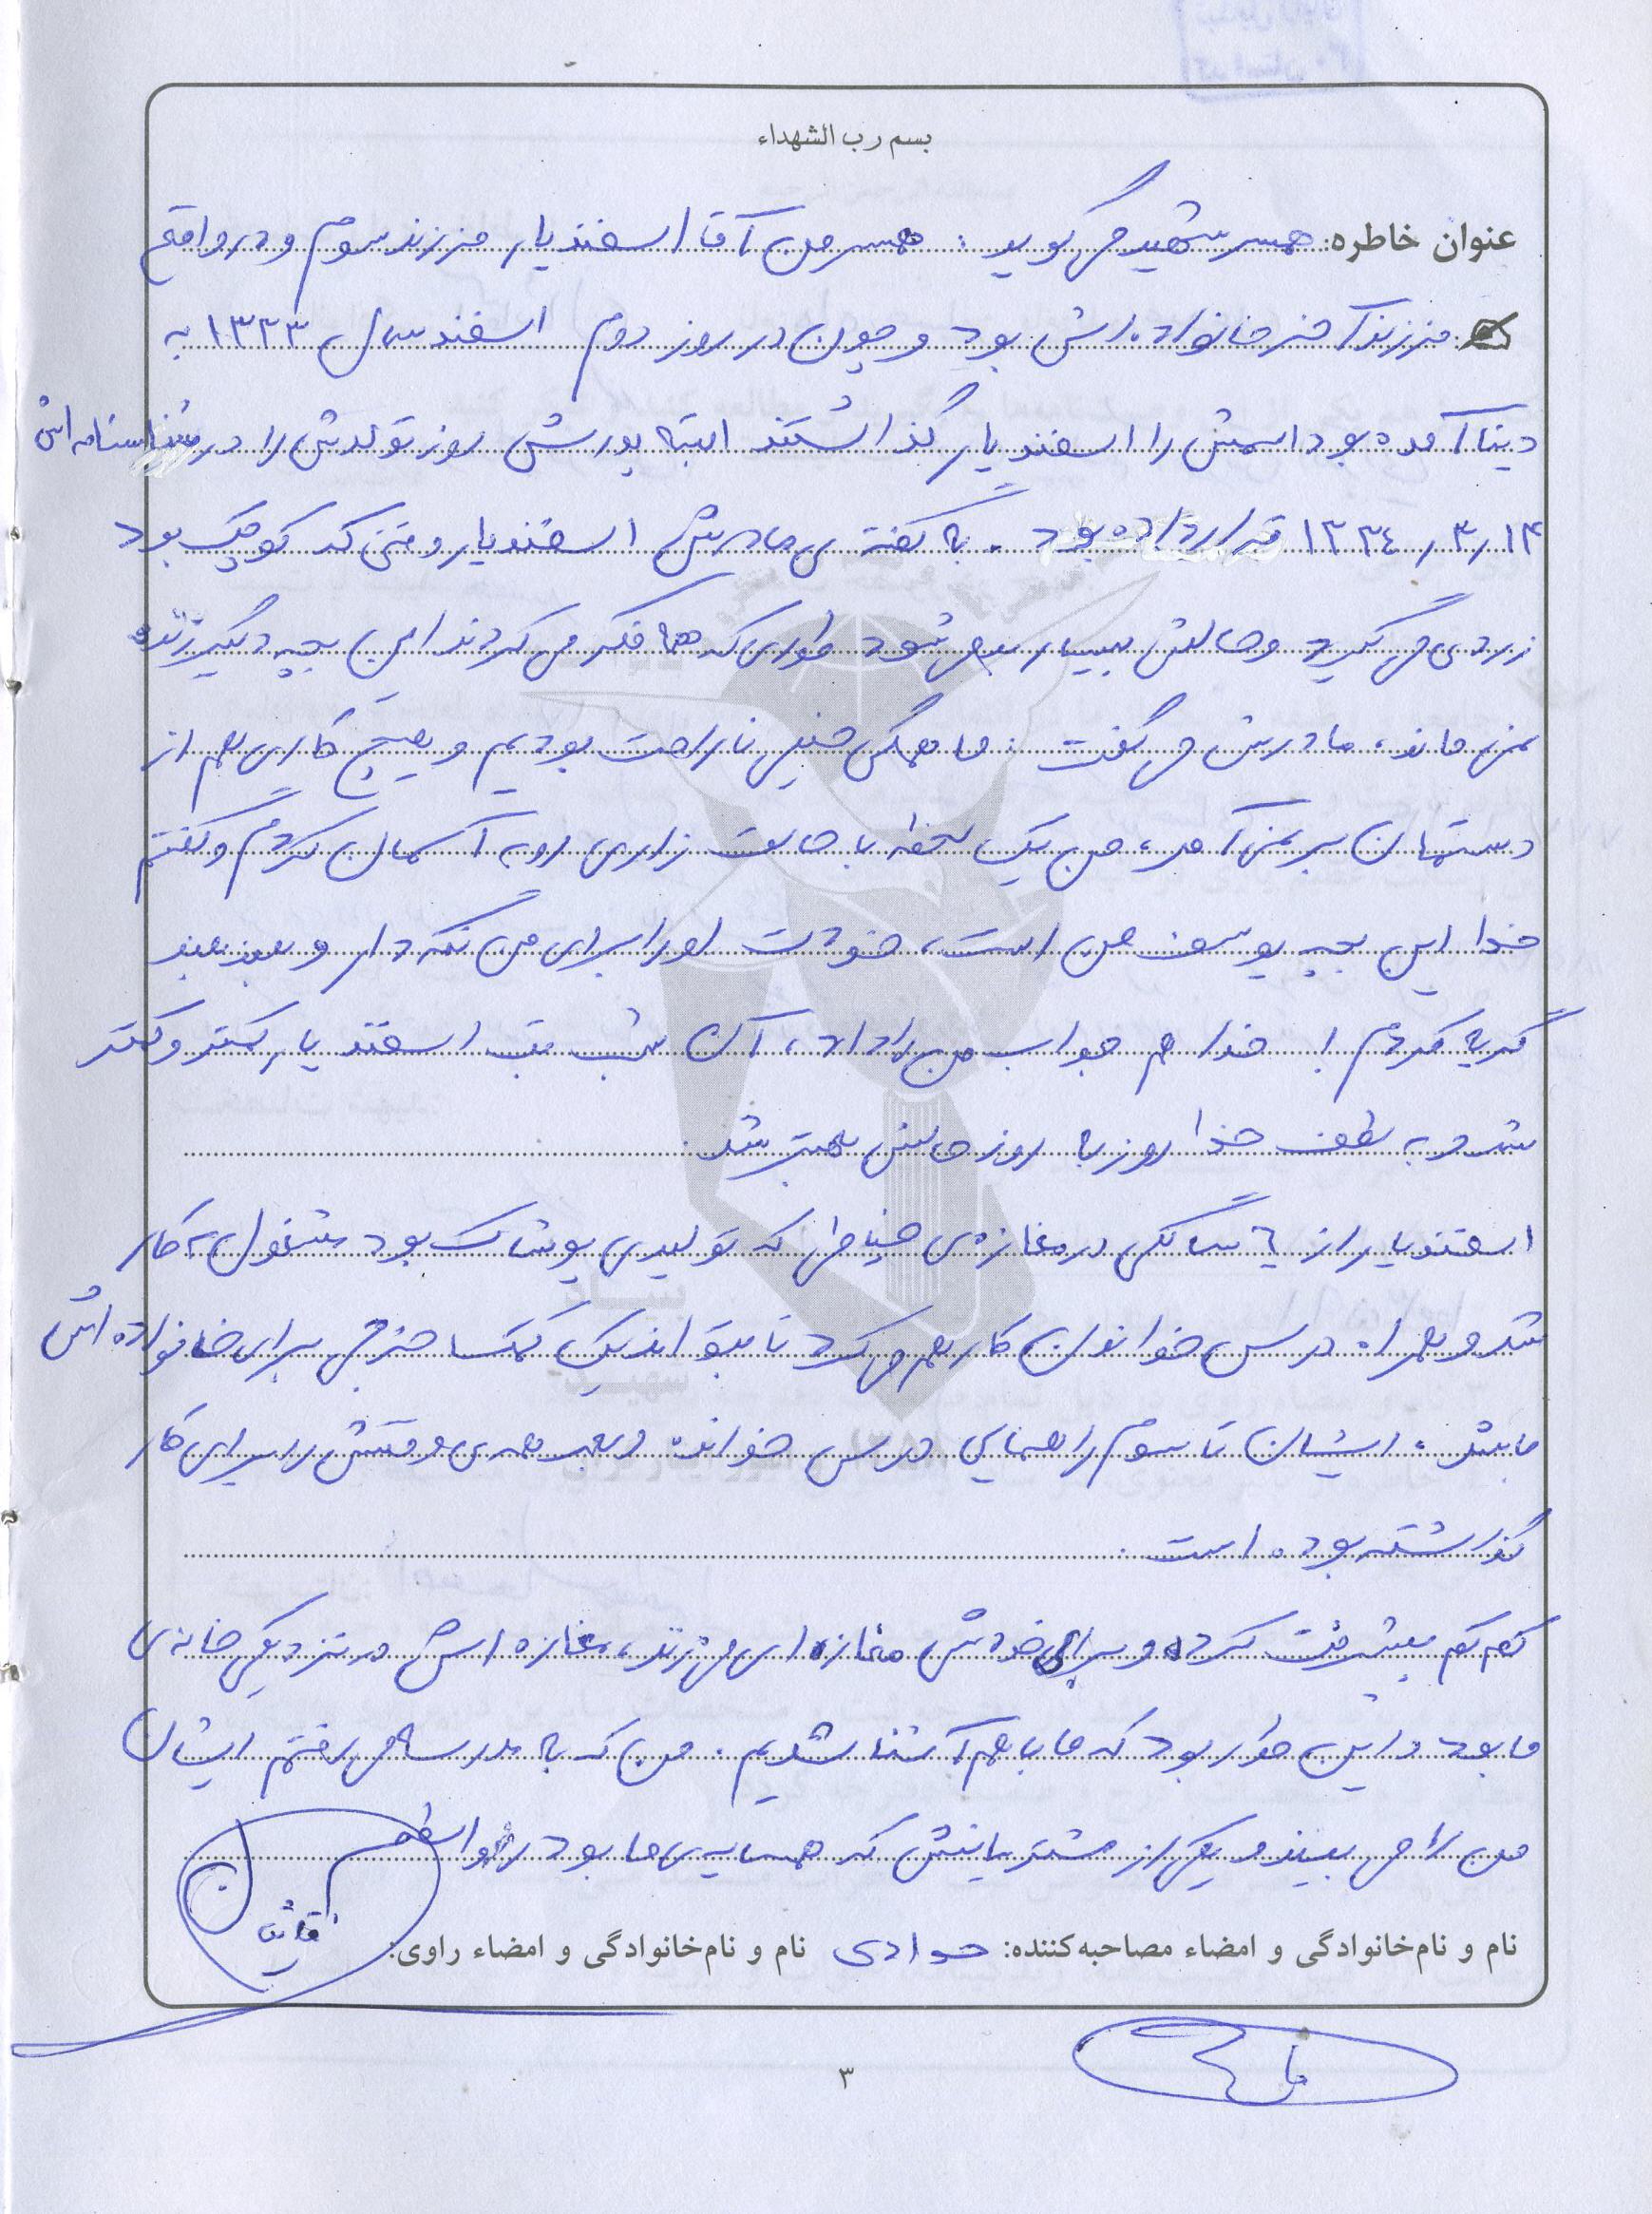 بسم رب الشهداء
عنوان خاطره: همسر شهید می گوید : همسر من آقا اسفندیار فرزند سوم و در واقع
فرزند آخر خانواده اش بود و چون در روز دوم اسفند سال ۱۳۳۳ به
دنیا آمده بود اسمش را اسفندیار گذاشتند البته پدرش روز تولدش را در شناسنامه اش
۱۳۳۴/۳/۱۴ قرار داده بود . به گفته ی مادرش اسفندیار وقتی که کوچک بود
زردی می گیرد و حالش بسیار بد می شود طوری که همه فکر می کردند این بچه دیگر زنده
نمی ماند، مادرش می گفت : ما همگی خیلی ناراحت بودیم و هیچ کاری هم از
دستمان بر نمی آمد، من یک لحظه با حالت زاری رو به آسمان کردم و گفتم
خدا این بچه یوسف من است، خودت او را برای من نگه دار و بلند بلند
گریه کردم ! خدا هم جواب من را داد، آن شب تب اسفندیار کمتر و کمتر
شد و به لطف خدا روز به روز حالش بهتر شد .
اسفندیار از ۶ سالگی در مغازه ی خیاطی که تولیدی پوشاک بود مشغول به کار
شد و همراه درس خواندن کار هم می کرد تا بتواند یک کمک خرجی برای خانواده اش
باشد . ایشان تا سوم راهنمایی درس خوانده و بعد همه ی وقتش را برای کار
گذاشته بوده است .
کم کم پیشرفت کرده و برای خودش مغازه ای می زند، مغازه اش در نزدیکی خانه ی
ما بود و این طور بود که ما با هم آشنا شدیم . من که به مدرسه می رفتم ایشان
من را می بیند و یکی از مشتریانش که همسایه ی ما بود را واسطه
نام و نام‌خانوادگی و امضاء مصاحبه‌کننده: جوادی نام و نام‌خانوادگی و امضاء راوی:
۳